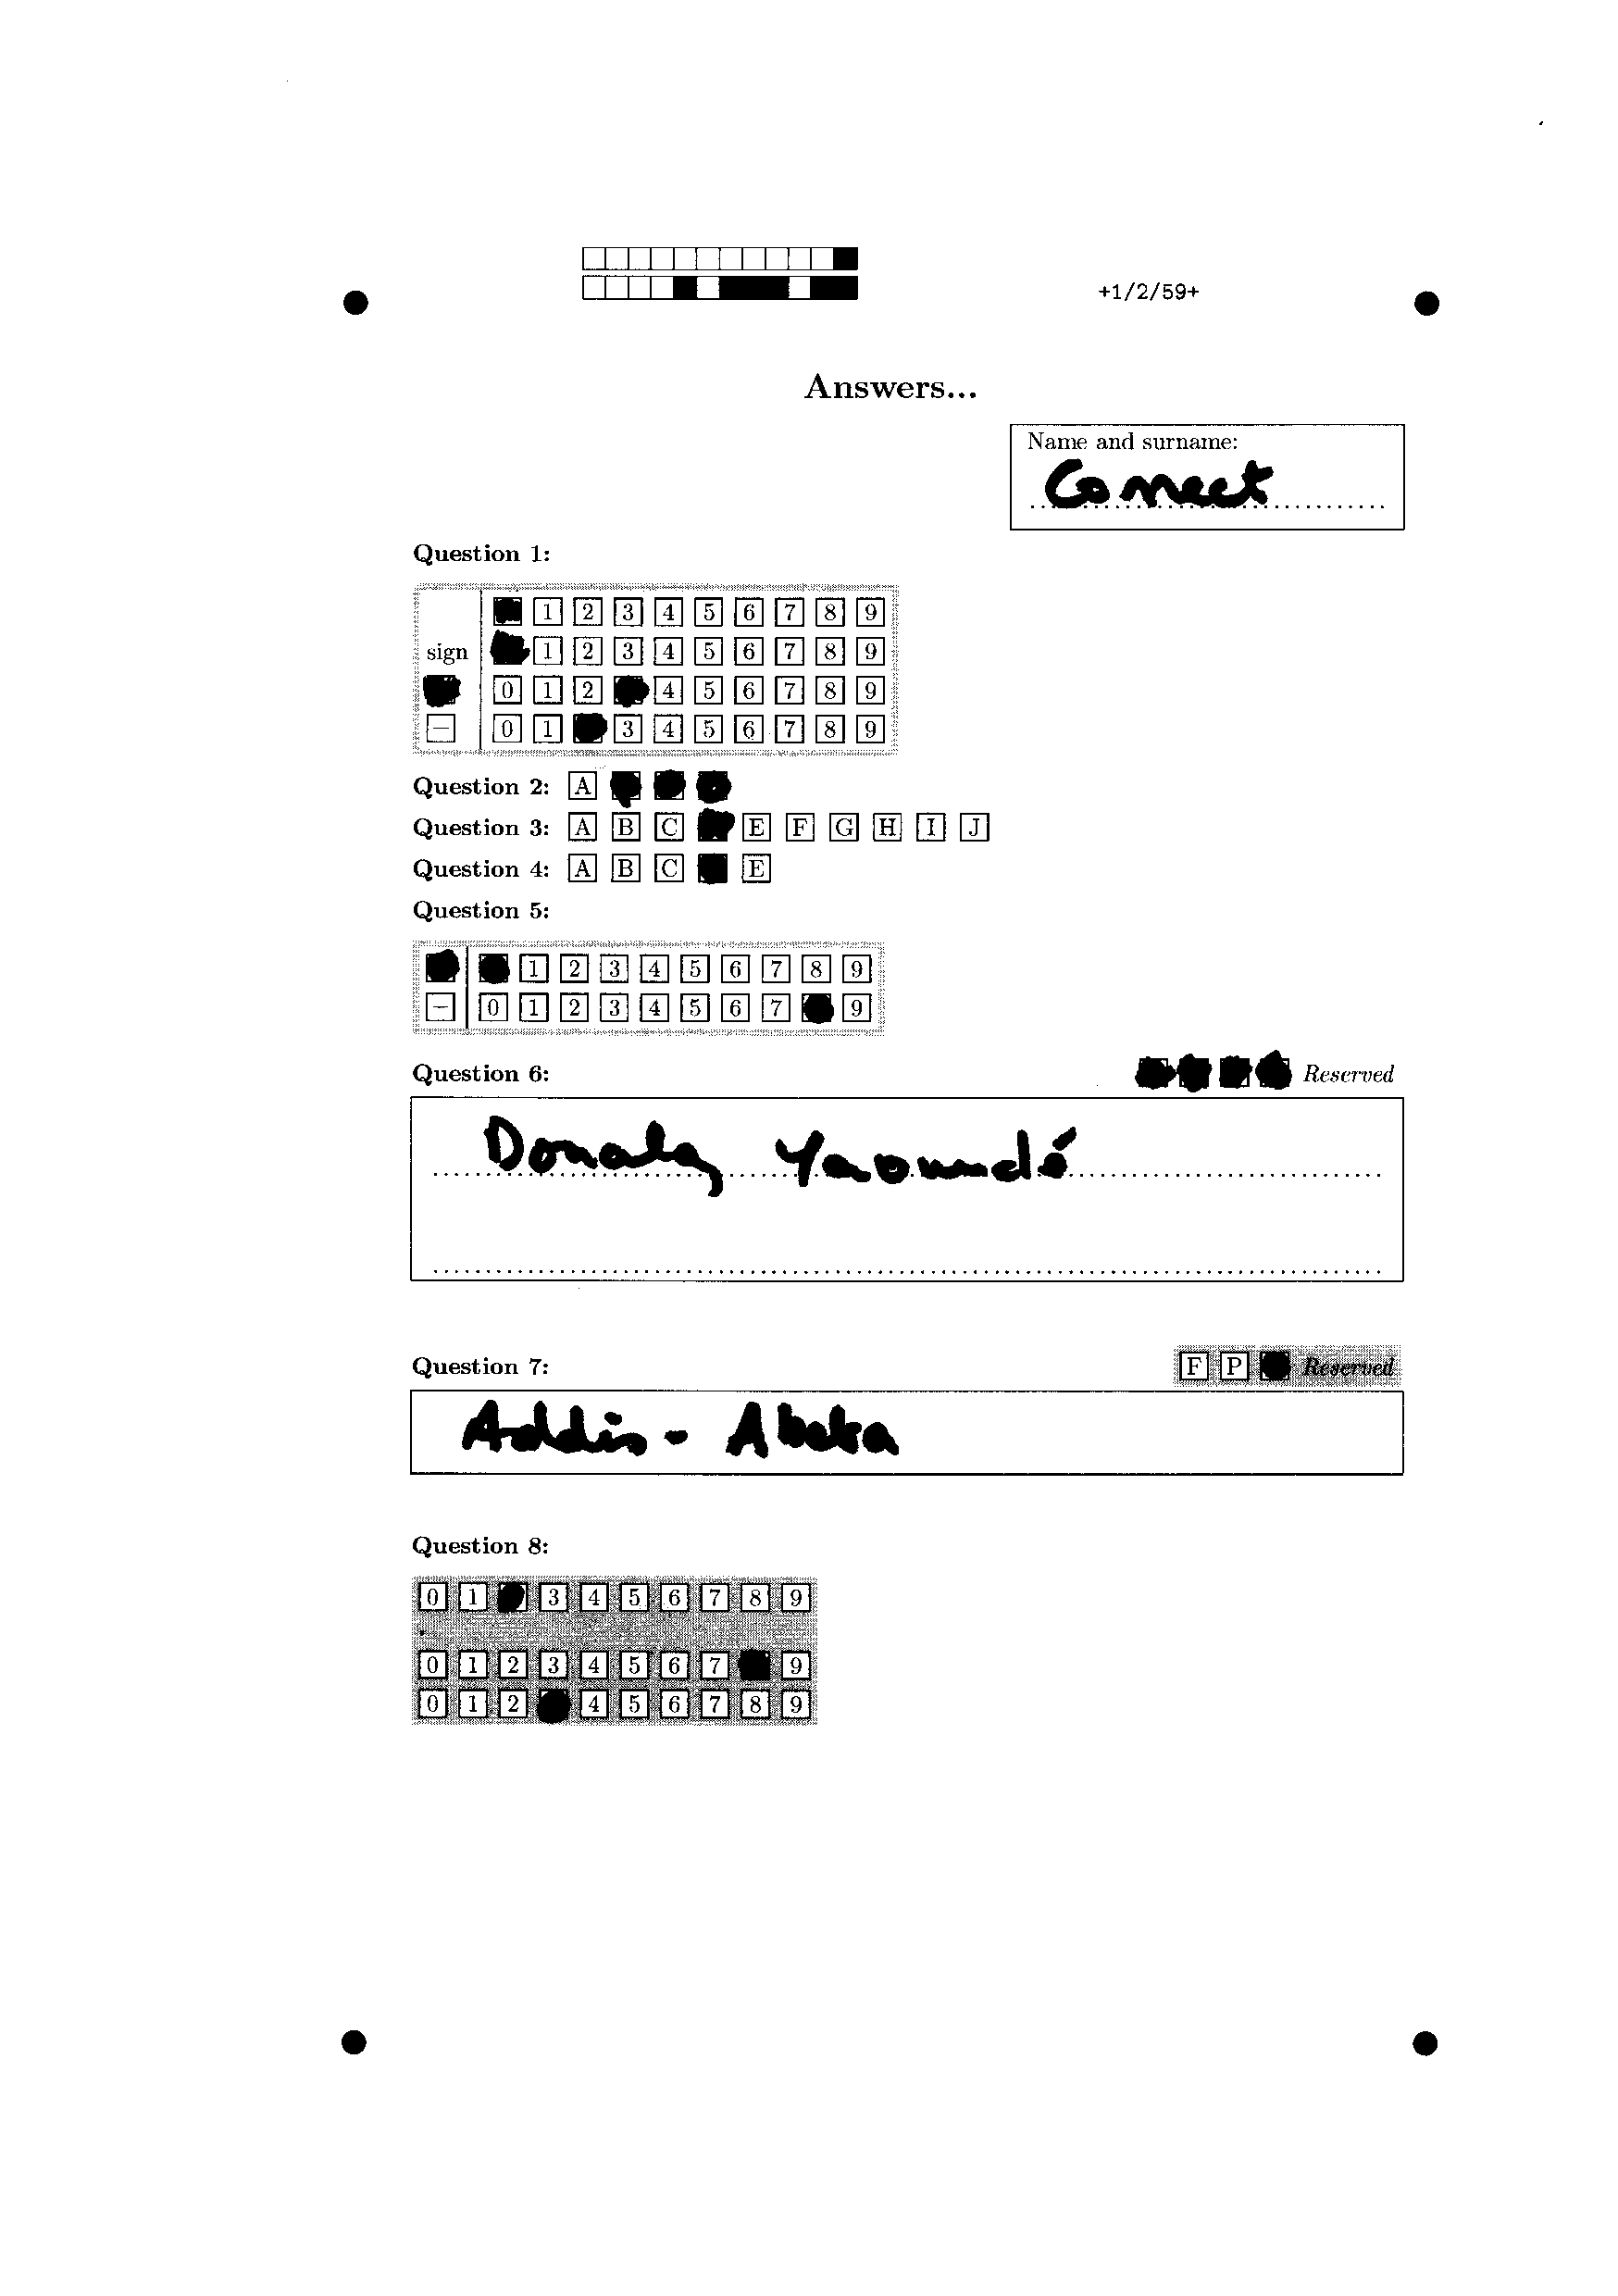 +1/2/59+
Answers...
Name and surname:
Correct
Question 1:
1 2 3 4 5 6 7 8 9
sign 1 2 3 4 5 6 7 8 9
0 1 2 4 5 6 7 8 9
− 0 1 3 4 5 6 7 8 9
Question 2: A
Question 3: A B C E F G H I J
Question 4: A B C E
Question 5:
1 2 3 4 5 6 7 8 9
− 0 1 2 3 4 5 6 7 9
Question 6: Reserved
Douala, Yaoundé
Question 7: F P Reserved
Addis - Abeba
Question 8:
0 1 3 4 5 6 7 8 9
.
0 1 2 3 4 5 6 7 9
0 1 2 4 5 6 7 8 9